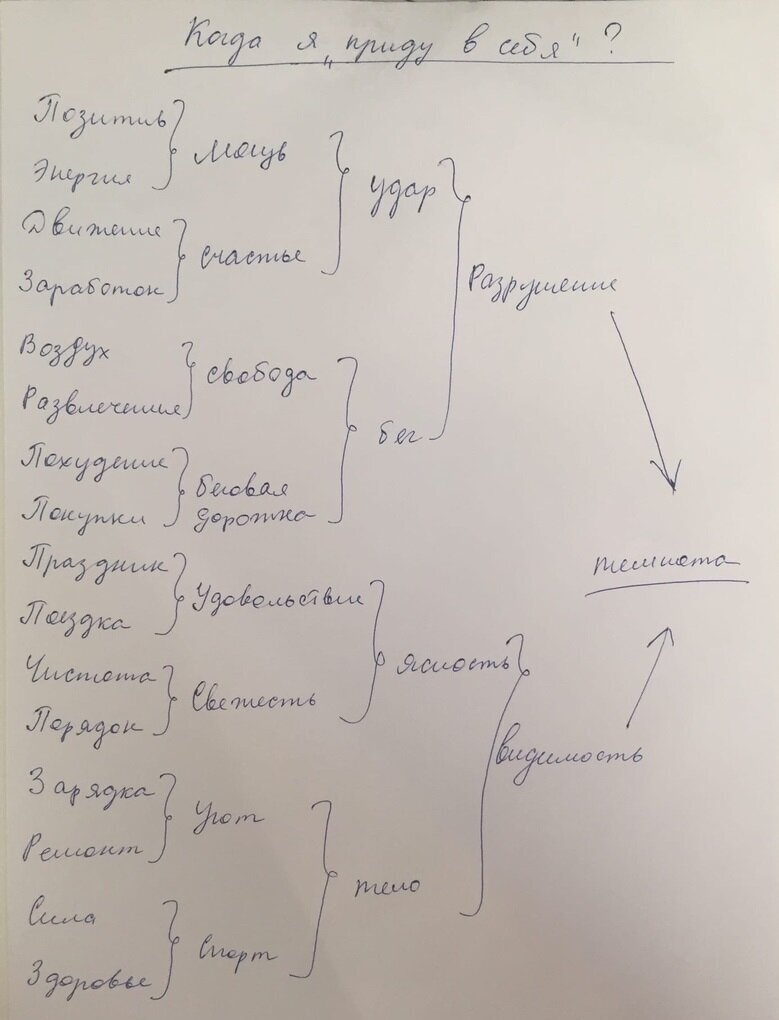 Когда я „приду в себя" ?
Позитив
Энергия
Мощь
Движение
Заработок
счастье
удар
Воздух
Развлечения
свобода
Похудение
Покупки
беговая
дорожка
бег
Разрушение
Праздник
Поездка
Удовольствие
Чистота
Порядок
Свежесть
ясность
Зарядка
Ремонт
Уют
Сила
Здоровье
Спорт
тело
видимость
темнота